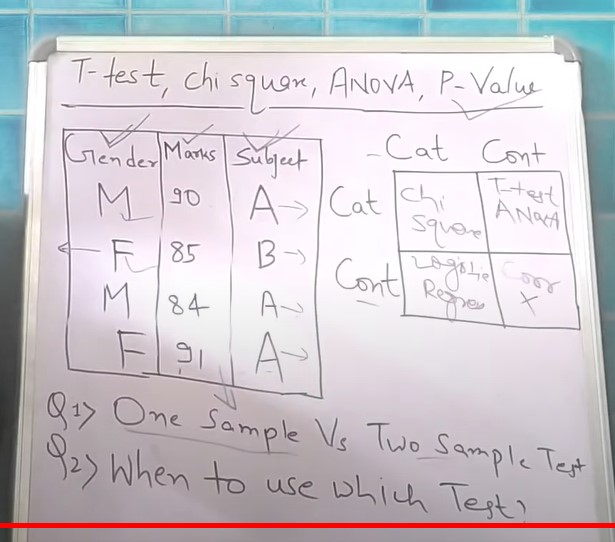 T-test, chi square, ANOVA, P-Value
Gender Marks Subject
M 90 A
F 85 B
M 84 A
F 91 A
Cat Cont
Cat Chi Square T-test ANOVA
Cont Logistic Regres Corr X
Q1> One Sample Vs Two Sample Test
Q2> When to use which Test?